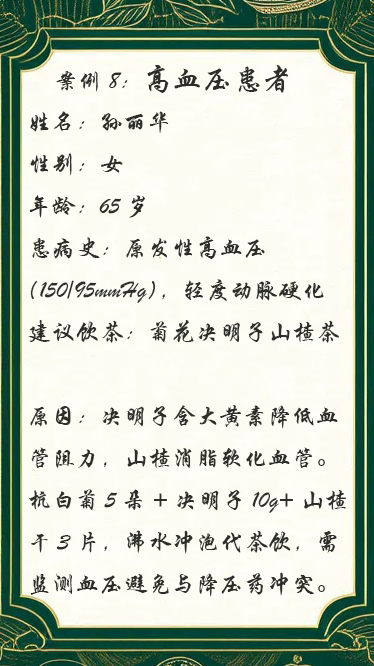 案例 8：高血压患者
姓名：孙丽华
性别：女
年龄：65 岁
患病史：原发性高血压
(150/95mmHg)，轻度动脉硬化
建议饮茶：菊花决明子山楂茶
原因：决明子含大黄素降低血
管阻力，山楂消脂软化血管。
杭白菊 5 朵 + 决明子 10g+ 山楂
干 3 片，沸水冲泡代茶饮，需
监测血压避免与降压药冲突。